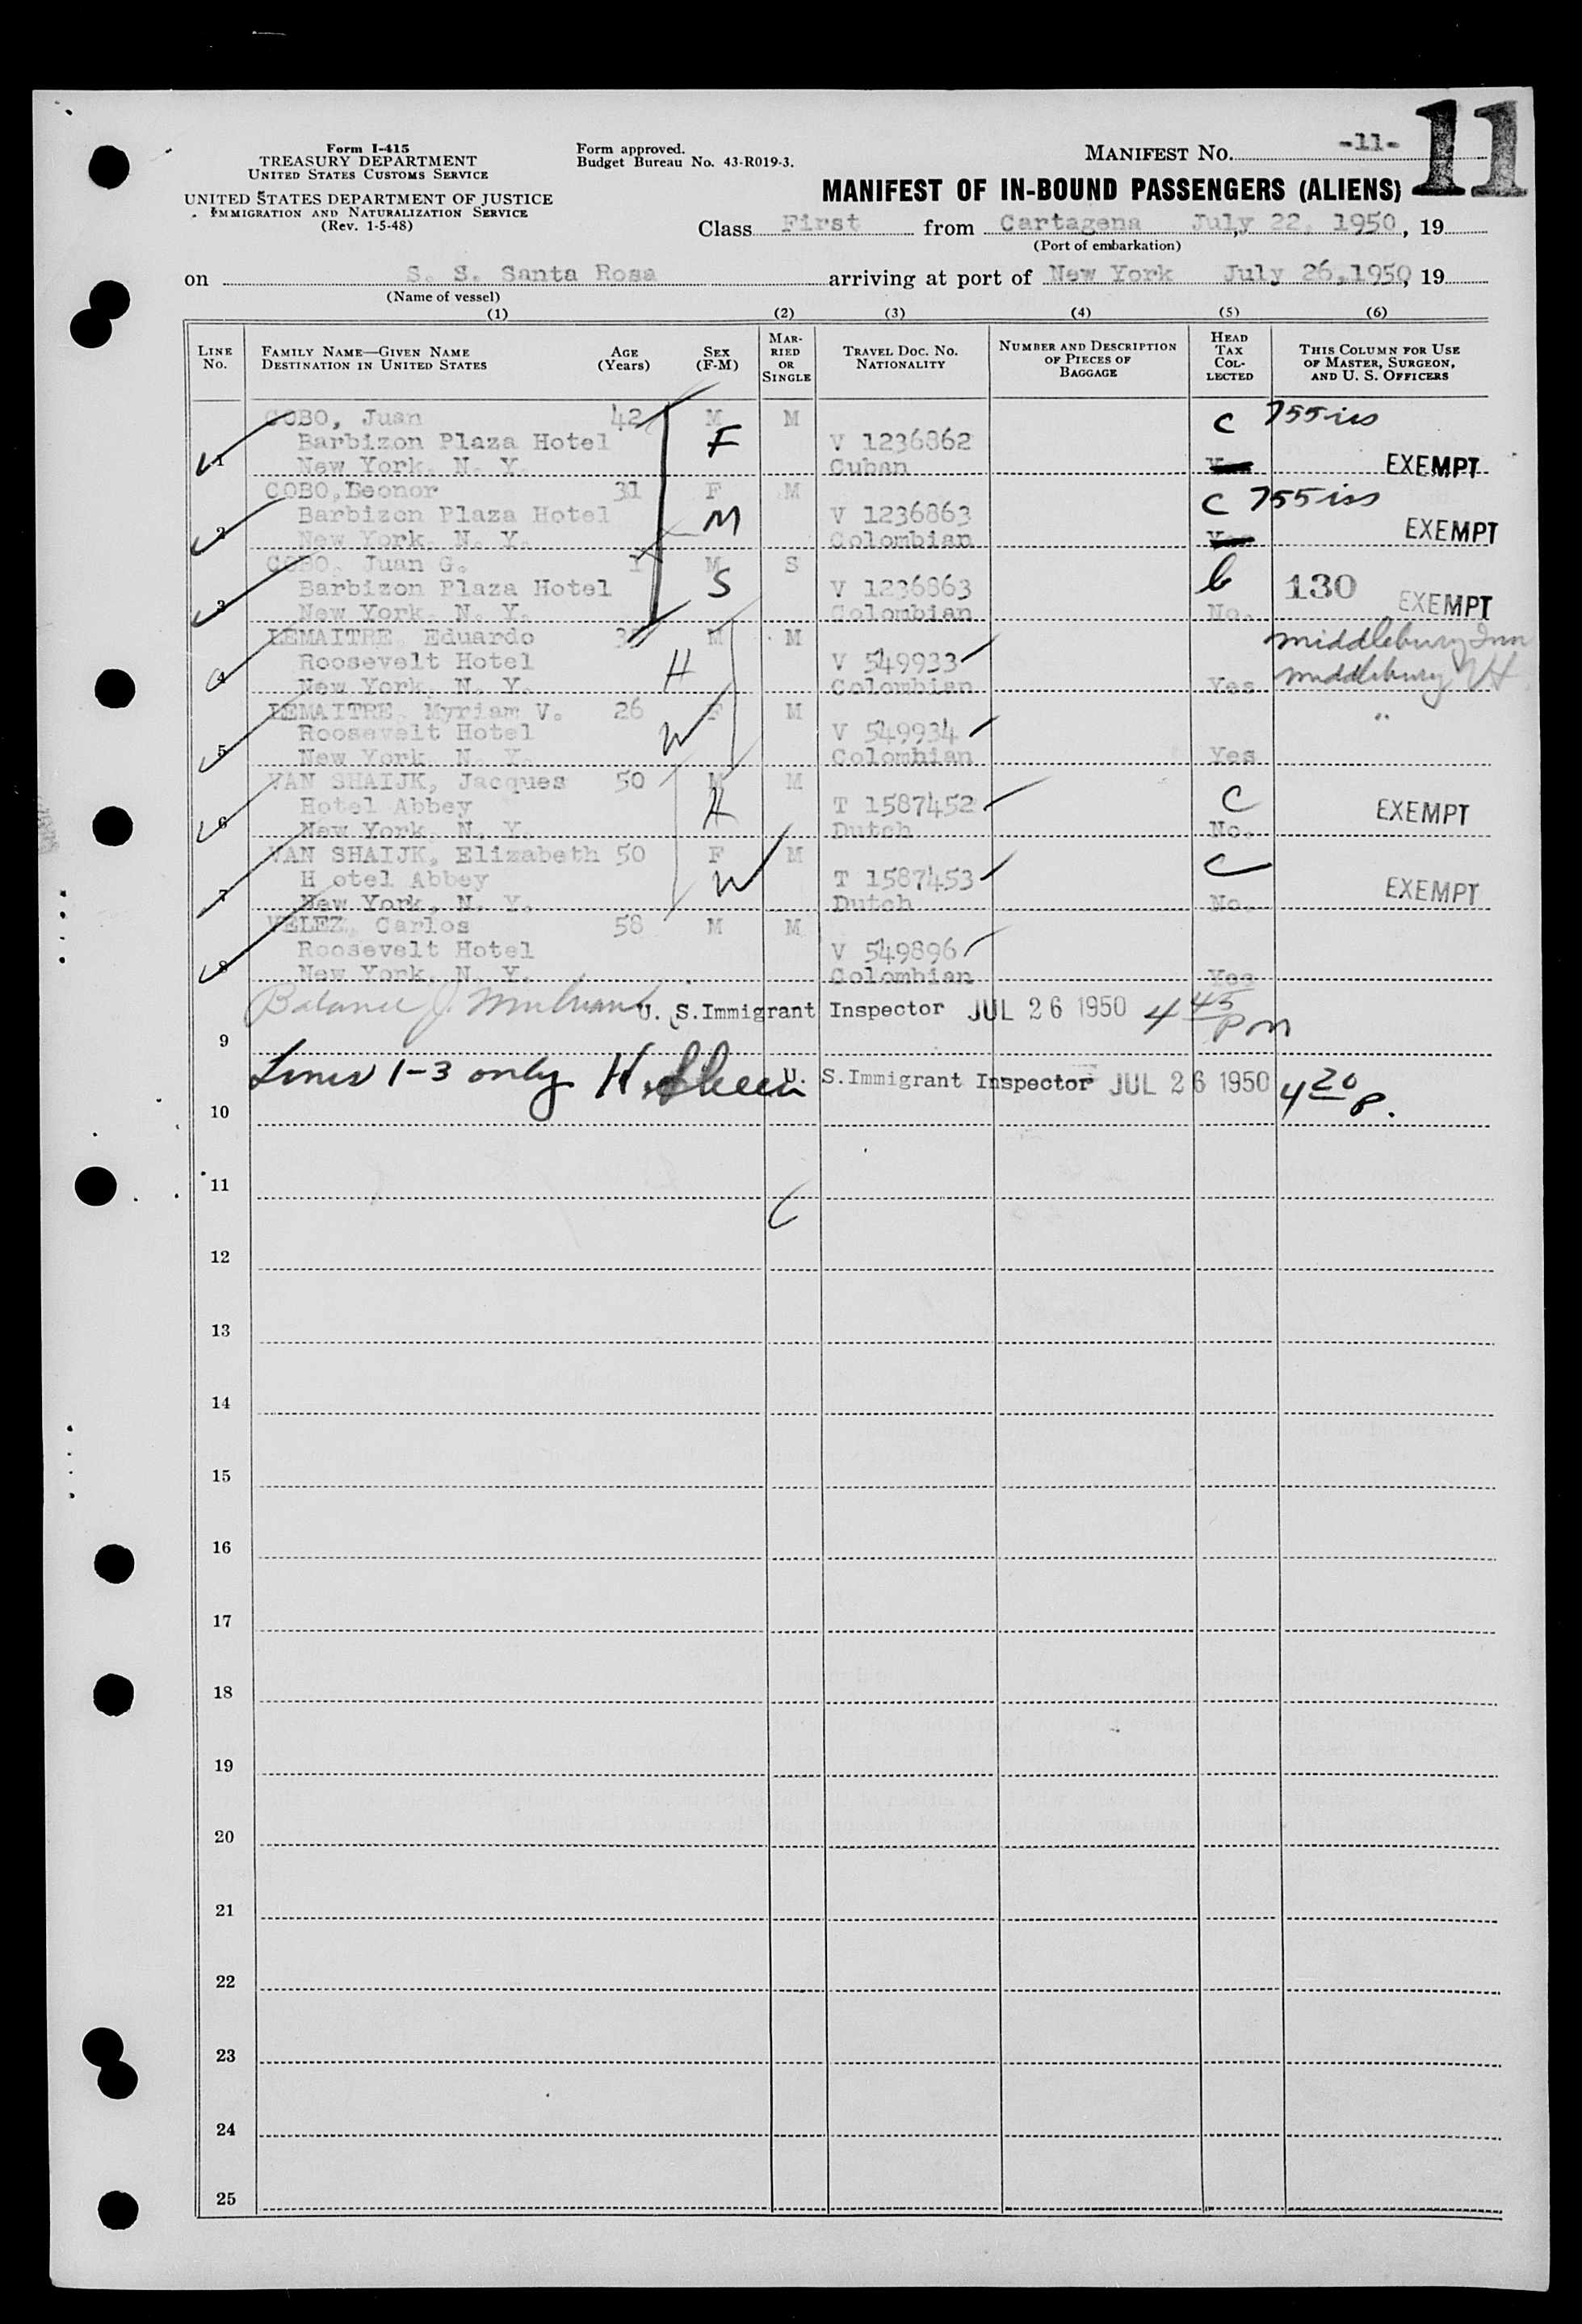 11
Form I-415
TREASURY DEPARTMENT
UNITED STATES CUSTOMS SERVICE
UNITED STATES DEPARTMENT OF JUSTICE
IMMIGRATION AND NATURALIZATION SERVICE
(Rev. 1-5-48)
Form approved.
Budget Bureau No. 43-R019-3.
MANIFEST NO. -11-
MANIFEST OF IN-BOUND PASSENGERS (ALIENS)
Class First from Cartagena July 22, 1950, 19
(Port of embarkation)
on S. S. Santa Rosa arriving at port of New York July 26, 1950, 19
(Name of vessel)
(1) (2) (3) (4) (5) (6)
LINE No. FAMILY NAME—GIVEN NAME DESTINATION IN UNITED STATES AGE (Years) SEX (F-M) MARRIED OR SINGLE TRAVEL DOC. NO. NATIONALITY NUMBER AND DESCRIPTION OF PIECES OF BAGGAGE HEAD TAX COLLECTED THIS COLUMN FOR USE OF MASTER, SURGEON, AND U. S. OFFICERS
COBO, Juan 42 M M C 755 iss
Barbizon Plaza Hotel F V 1236862
1 New York, N. Y. Cuban EXEMPT
COBO, Leonor 31 F M C 755 iss
Barbizon Plaza Hotel M V 1236863
2 New York, N. Y. Colombian EXEMPT
COBO, Juan G. 1 M S
Barbizon Plaza Hotel S V 1236863 130
3 New York, N. Y. Colombian No. EXEMPT
LEMAITRE, Eduardo M M Middlebury Inn
Roosevelt Hotel H V 549933
4 New York, N. Y. Colombian Yes Middlebury Vt
LEMAITRE, Myriam V. 26 F M "
Roosevelt Hotel W V 549934
5 New York, N. Y. Colombian Yes
VAN SHAIJK, Jacques 50 M M
Hotel Abbey H T 1587452 C EXEMPT
6 New York, N. Y. Dutch No.
VAN SHAIJK, Elizabeth 50 F M C
H otel Abbey W T 1587453 EXEMPT
7 New York, N. Y. Dutch No.
VELEZ, Carlos 58 M M
Roosevelt Hotel V 549896
8 New York, N. Y. Colombian Yes
Balance J. U. S. Immigrant Inspector JUL 26 1950 4 45 pm
9
Lines 1-3 only H. U. S. Immigrant Inspector JUL 26 1950 4 20 p.
10
11
12
13
14
15
16
17
18
19
20
21
22
23
24
25